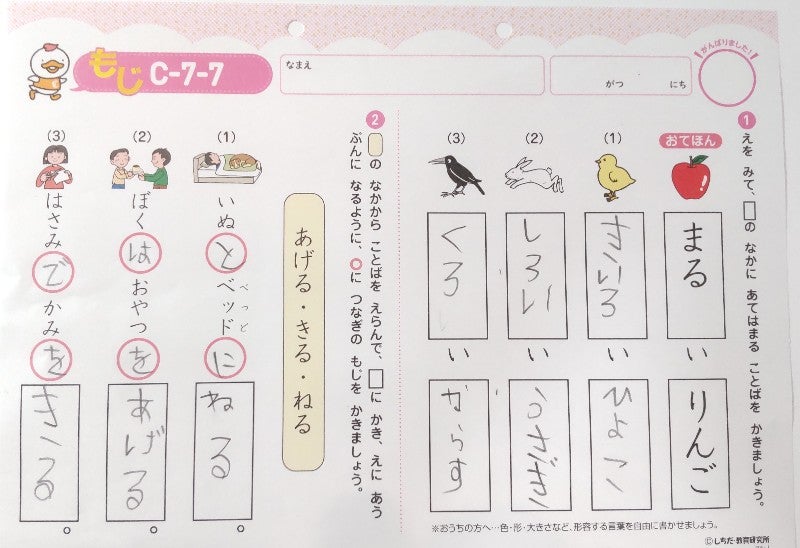 もじ C-7-7
なまえ
がつ にち
がんばりました!
1 えを みて、□の なかに あてはまる ことばを かきましょう。
おてほん
まる
い
りんご
(1)
きいろ
い
ひよこ
(2)
しろい
い
うさぎ
(3)
くろ
い
からす
※おうちの方へ…色・形・大きさなど、形容する言葉を自由に書かせましょう。
2 □の なかから ことばを えらんで、□に かき、えに あう
ぶんに なるように、○に つなぎの もじを かきましょう。
あげる・きる・ねる
(1)
いぬ と ベッド に ねる。
べっど
(2)
ぼく は おやつ を あげる。
(3)
はさみ で かみ を きる。
©しちだ・教育研究所